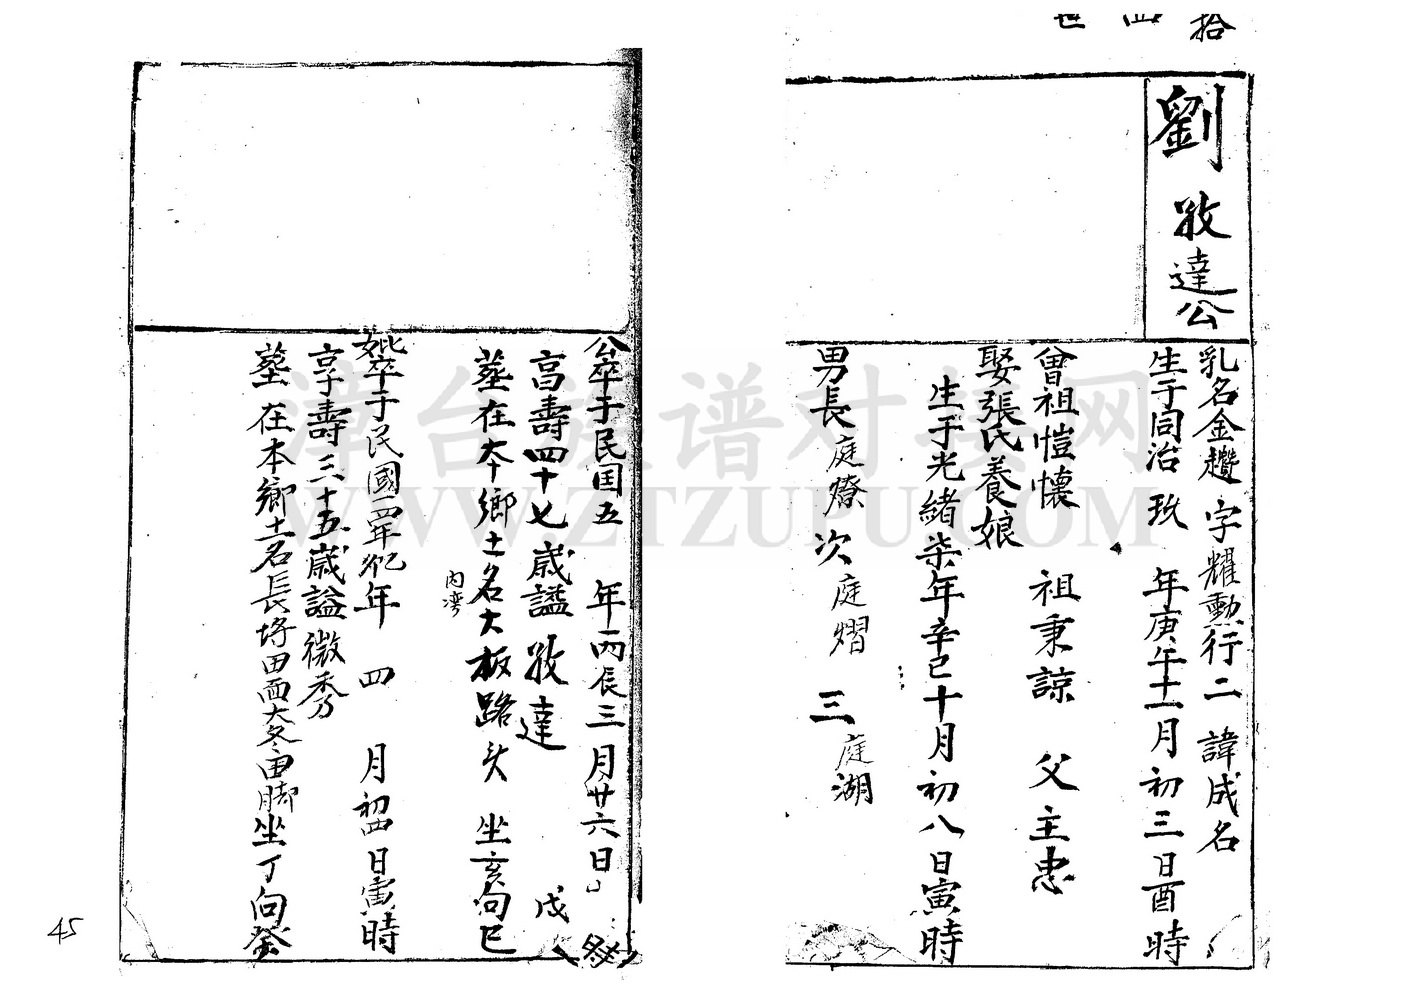 拾四世
劉敦達公
乳名金趲 字耀勳行二 諱成名
生于同治玖年庚午十一月初三日酉時
曾祖愷懷 祖秉諒 父主忠
娶張氏養娘
生于光緒柒年辛巳十月初八日寅時
男長庭燎 次庭熠 三庭湖
公卒于民国五年丙辰三月廿六日戌時
高壽四十七歲謚敦達
葬在本鄉土名大板路头 坐亥向巳
内湾
妣卒于民國四年 年四月初四日寅時
享壽三十五歲謚微秀
葬在本鄉土名長垮田面大冬由脚坐丁向癸
45
漳台族谱对接网
WWW.ZTZUPU.COM